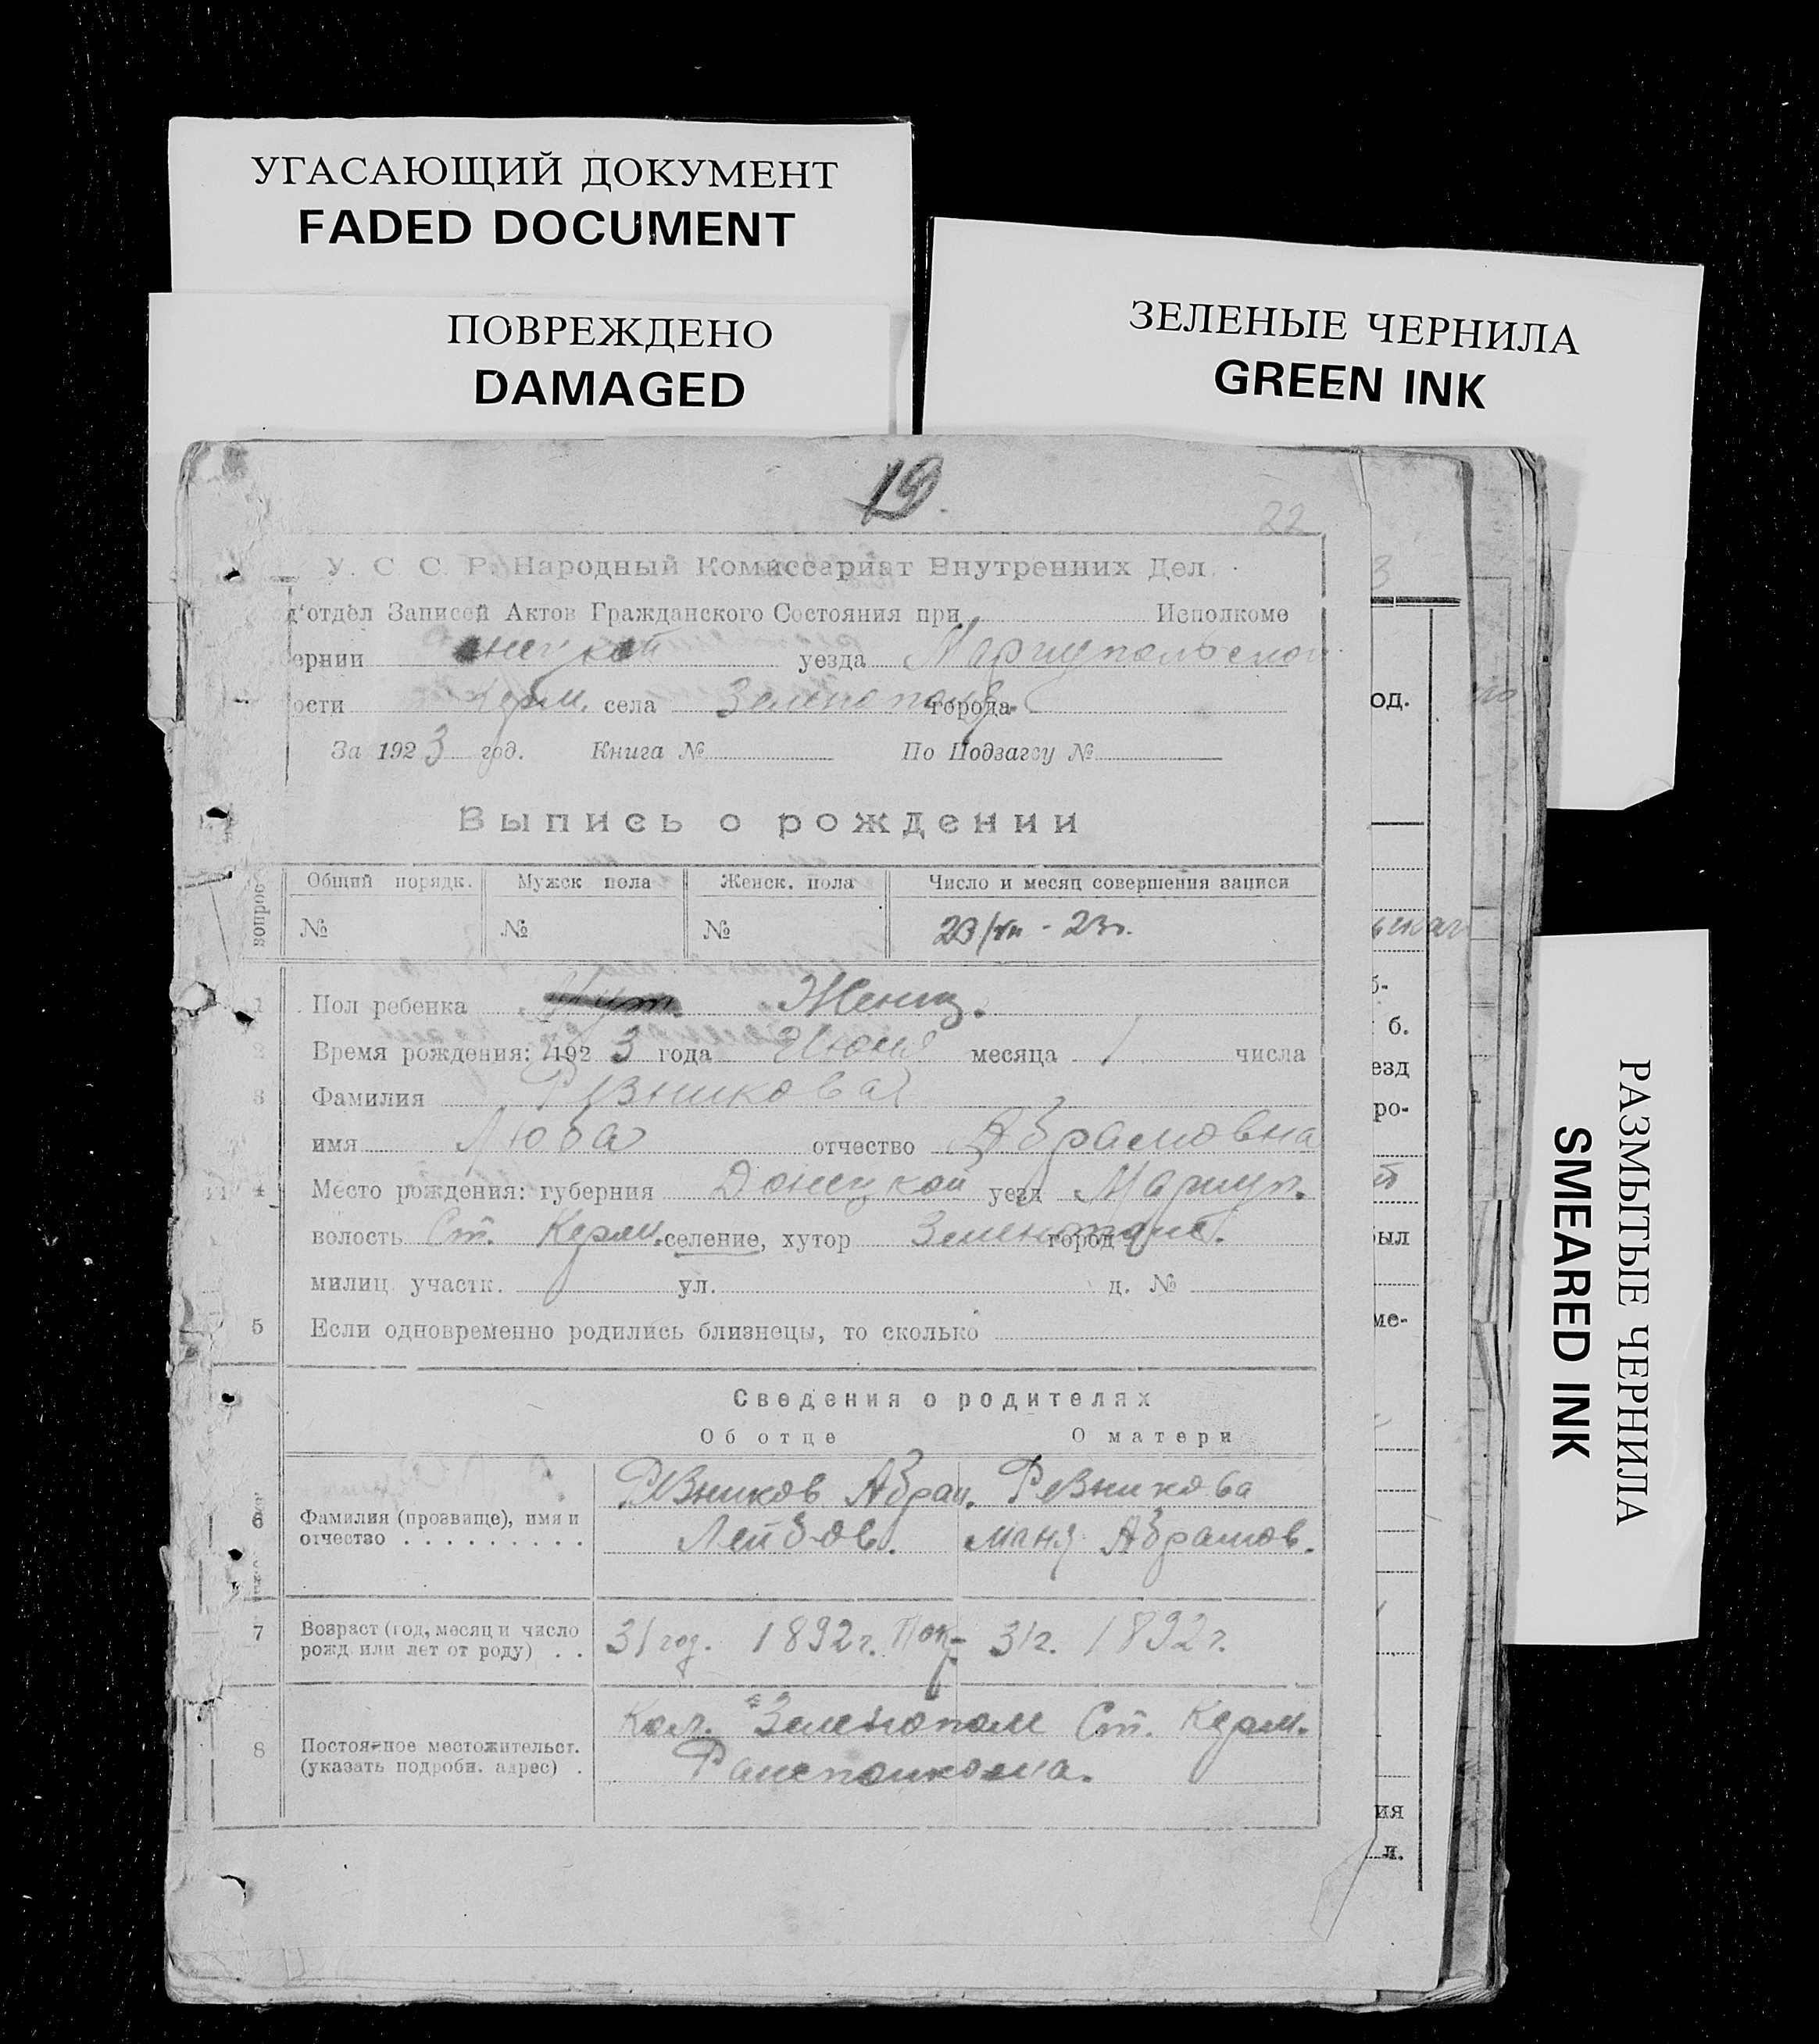 УГАСАЮЩИЙ ДОКУМЕНТ
FADED DOCUMENT
ПОВРЕЖДЕНО
DAMAGED
ЗЕЛЕНЫЕ ЧЕРНИЛА
GREEN INK
РАЗМЫТЫЕ ЧЕРНИЛА
SMEARED INK
19.
22
У. С. С. Р. Народный Комиссариат Внутренних Дел.
д'отдел Записей Актов Гражданского Состояния при Исполкоме
ернии онецкой уезда Мариупольской
ости Керм. села Зеленополь города
За 1923 год. Книга № По Подзагсу №
Выпись о рождении
вопрос
Общий порядк. Мужск пола Женск. пола Число и месяц совершения записи
№ № № 23/VII - 23г.
1 Пол ребенка Муж Женщ.
2 Время рождения: 1923 года Июня месяца 1 числа
3 Фамилия Резникова
имя Люба отчество Абрамовна
4 Место рождения: губерния Донецкой уезд Мариуп.
волость Ст. Керм. селение, хутор Зеленополь город
милиц. участк. ул. д. №
5 Если одновременно родились близнецы, то сколько
Сведения о родителях
Об отце О матери
6 Фамилия (прозвище), имя и отчество Резников Абрам. Резникова
Лейбов. Маня Абрамов.
7 Возраст (год, месяц и число рожд. или лет от роду) 31 год. 1892 г. 31 г. 1892 г.
8 Постоянное местожительст. (указать подробн. адрес) Кол. Зеленополь Ст. Керм.